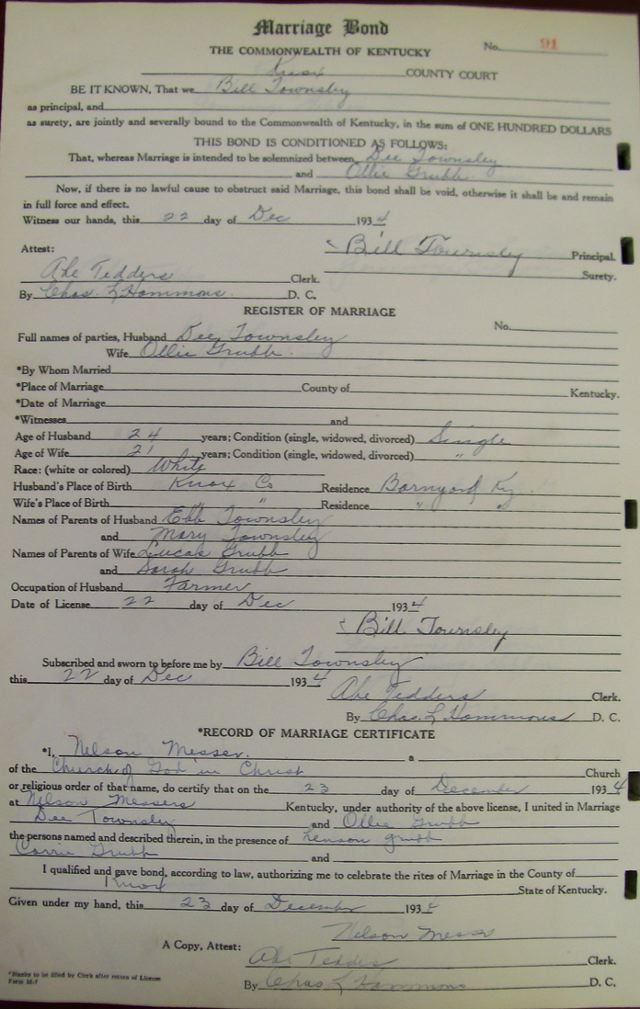 Marriage Bond
THE COMMONWEALTH OF KENTUCKY No. 91
Knox COUNTY COURT
BE IT KNOWN, That we Bill Townsley
as principal, and
as surety, are jointly and severally bound to the Commonwealth of Kentucky, in the sum of ONE HUNDRED DOLLARS
THIS BOND IS CONDITIONED AS FOLLOWS:
That, whereas Marriage is intended to be solemnized between Dee Townsley
and Ollie Grubb.
Now, if there is no lawful cause to obstruct said Marriage, this bond shall be void, otherwise it shall be and remain
in full force and effect.
Witness our hands, this 22 day of Dec 1934
Attest: Bill Townsley Principal.
Abe Tedders Clerk. Surety.
By Chas. L Hammons. D. C.
REGISTER OF MARRIAGE
No.
Full names of parties, Husband Dee Townsley
Wife Ollie Grubb.
*By Whom Married
*Place of Marriage County of Kentucky.
*Date of Marriage
*Witnesses and
Age of Husband 24 years; Condition (single, widowed, divorced) Single
Age of Wife 21 years; Condition (single, widowed, divorced) "
Race: (white or colored) White
Husband's Place of Birth Knox Co Residence Barnyard Ky.
Wife's Place of Birth " " Residence " "
Names of Parents of Husband Ebb Townsley
and Mary Townsley
Names of Parents of Wife Lucas Grubb
and Sarah Grubb
Occupation of Husband Farmer
Date of License 22 day of Dec 1934
Bill Townsley
Subscribed and sworn to before me by Bill Townsley
this 22 day of Dec 1934
Abe Tedders Clerk.
By Chas. L Hammons D. C.
*RECORD OF MARRIAGE CERTIFICATE
*I, Nelson Messer. a
of the Church of God in Christ Church
or religious order of that name, do certify that on the 23 day of December 1934
at Nelson Messers Kentucky, under authority of the above license, I united in Marriage
Dee Townsley and Ollie Grubb
the persons named and described therein, in the presence of grubb
Carrie Grubb and
I qualified and gave bond, according to law, authorizing me to celebrate the rites of Marriage in the County of
Knox State of Kentucky.
Given under my hand, this 23 day of December 1934
Nelson Messer
A Copy, Attest: Abe Tedders Clerk.
By Chas L Hammons D. C.
*Blanks to be filled by Clerk after return of License
Form M-7